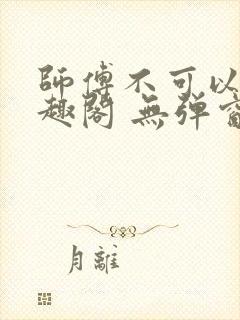 師傅不可以
趣閣 無彈窗
月離